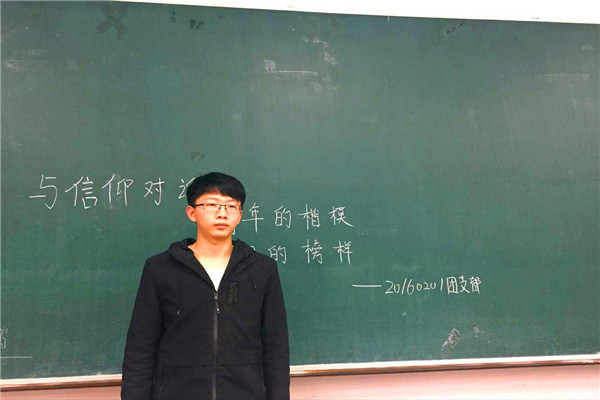 与信仰对
年的楷模
的榜样
——20160201团支部